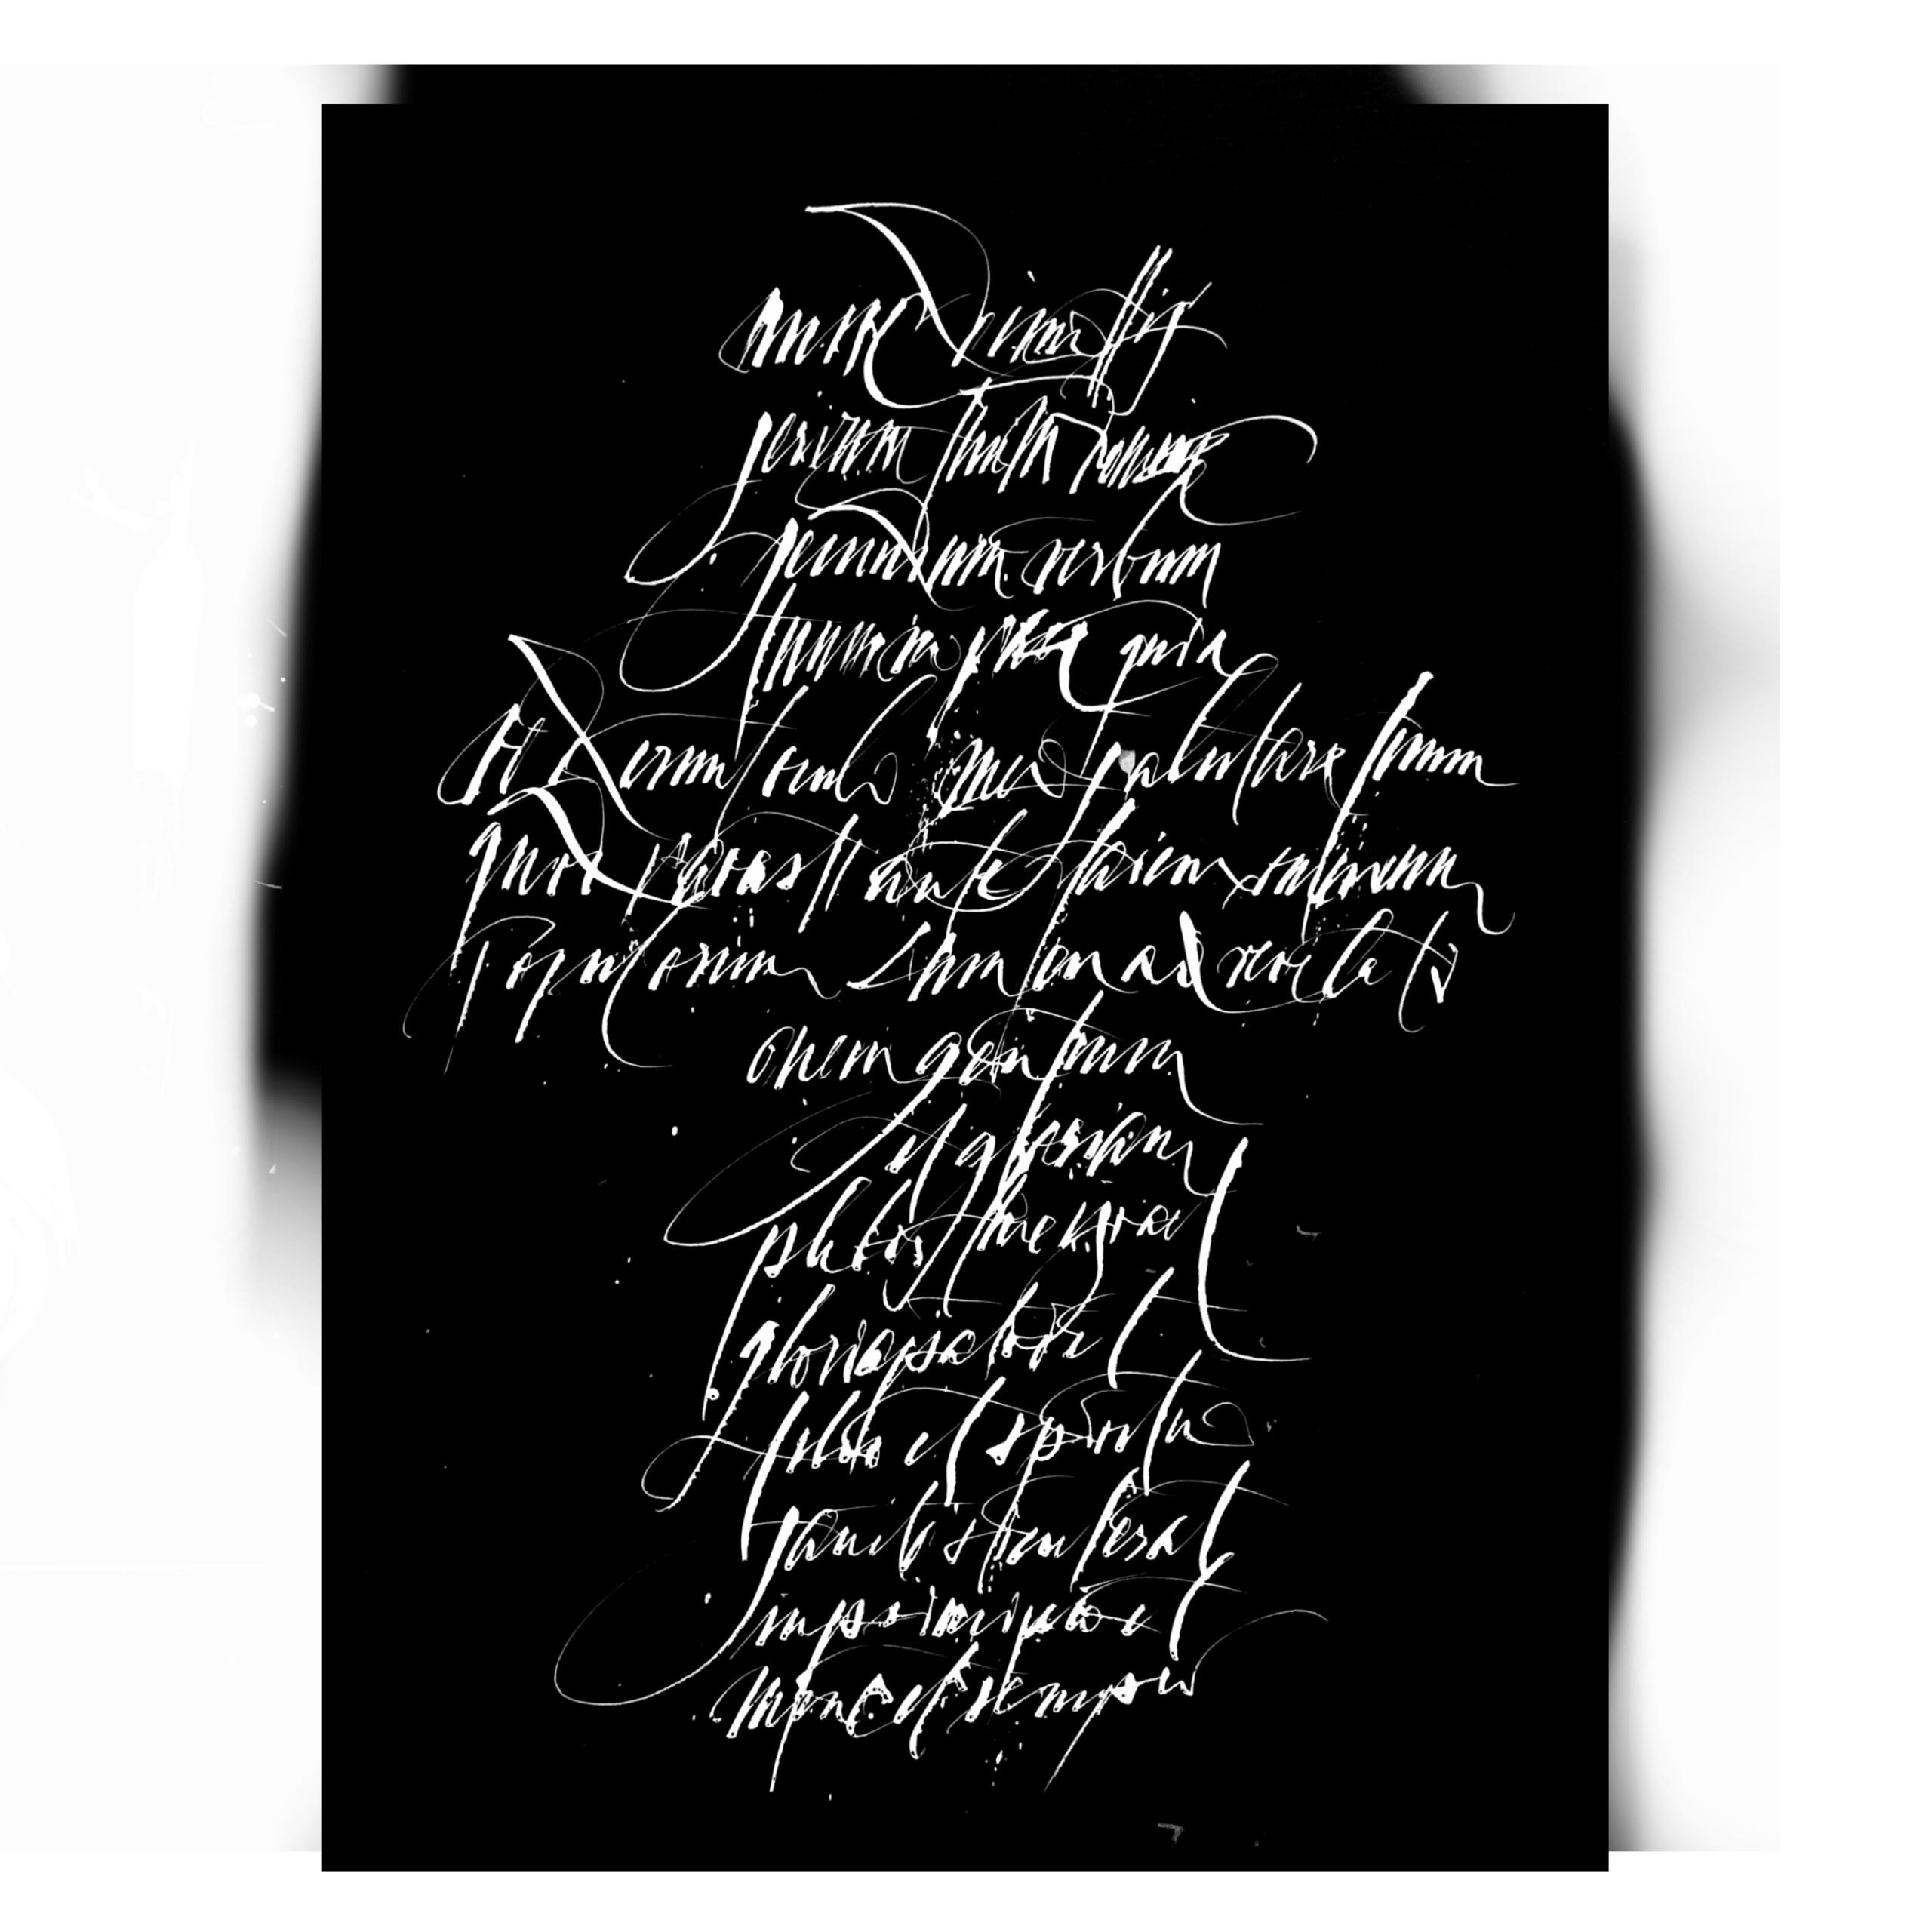 nunc dimittis
servum tuum Domine
secundum verbum
tuum in pace quia
viderunt oculi mei salutare tuum
quod parasti ante faciem omnium
populorum lumen ad revelati
onem gentium
et gloriam
plebis tuae Israel
gloria patri et
filio et spiritui
sancto sicut erat
in principio et
nunc et semper